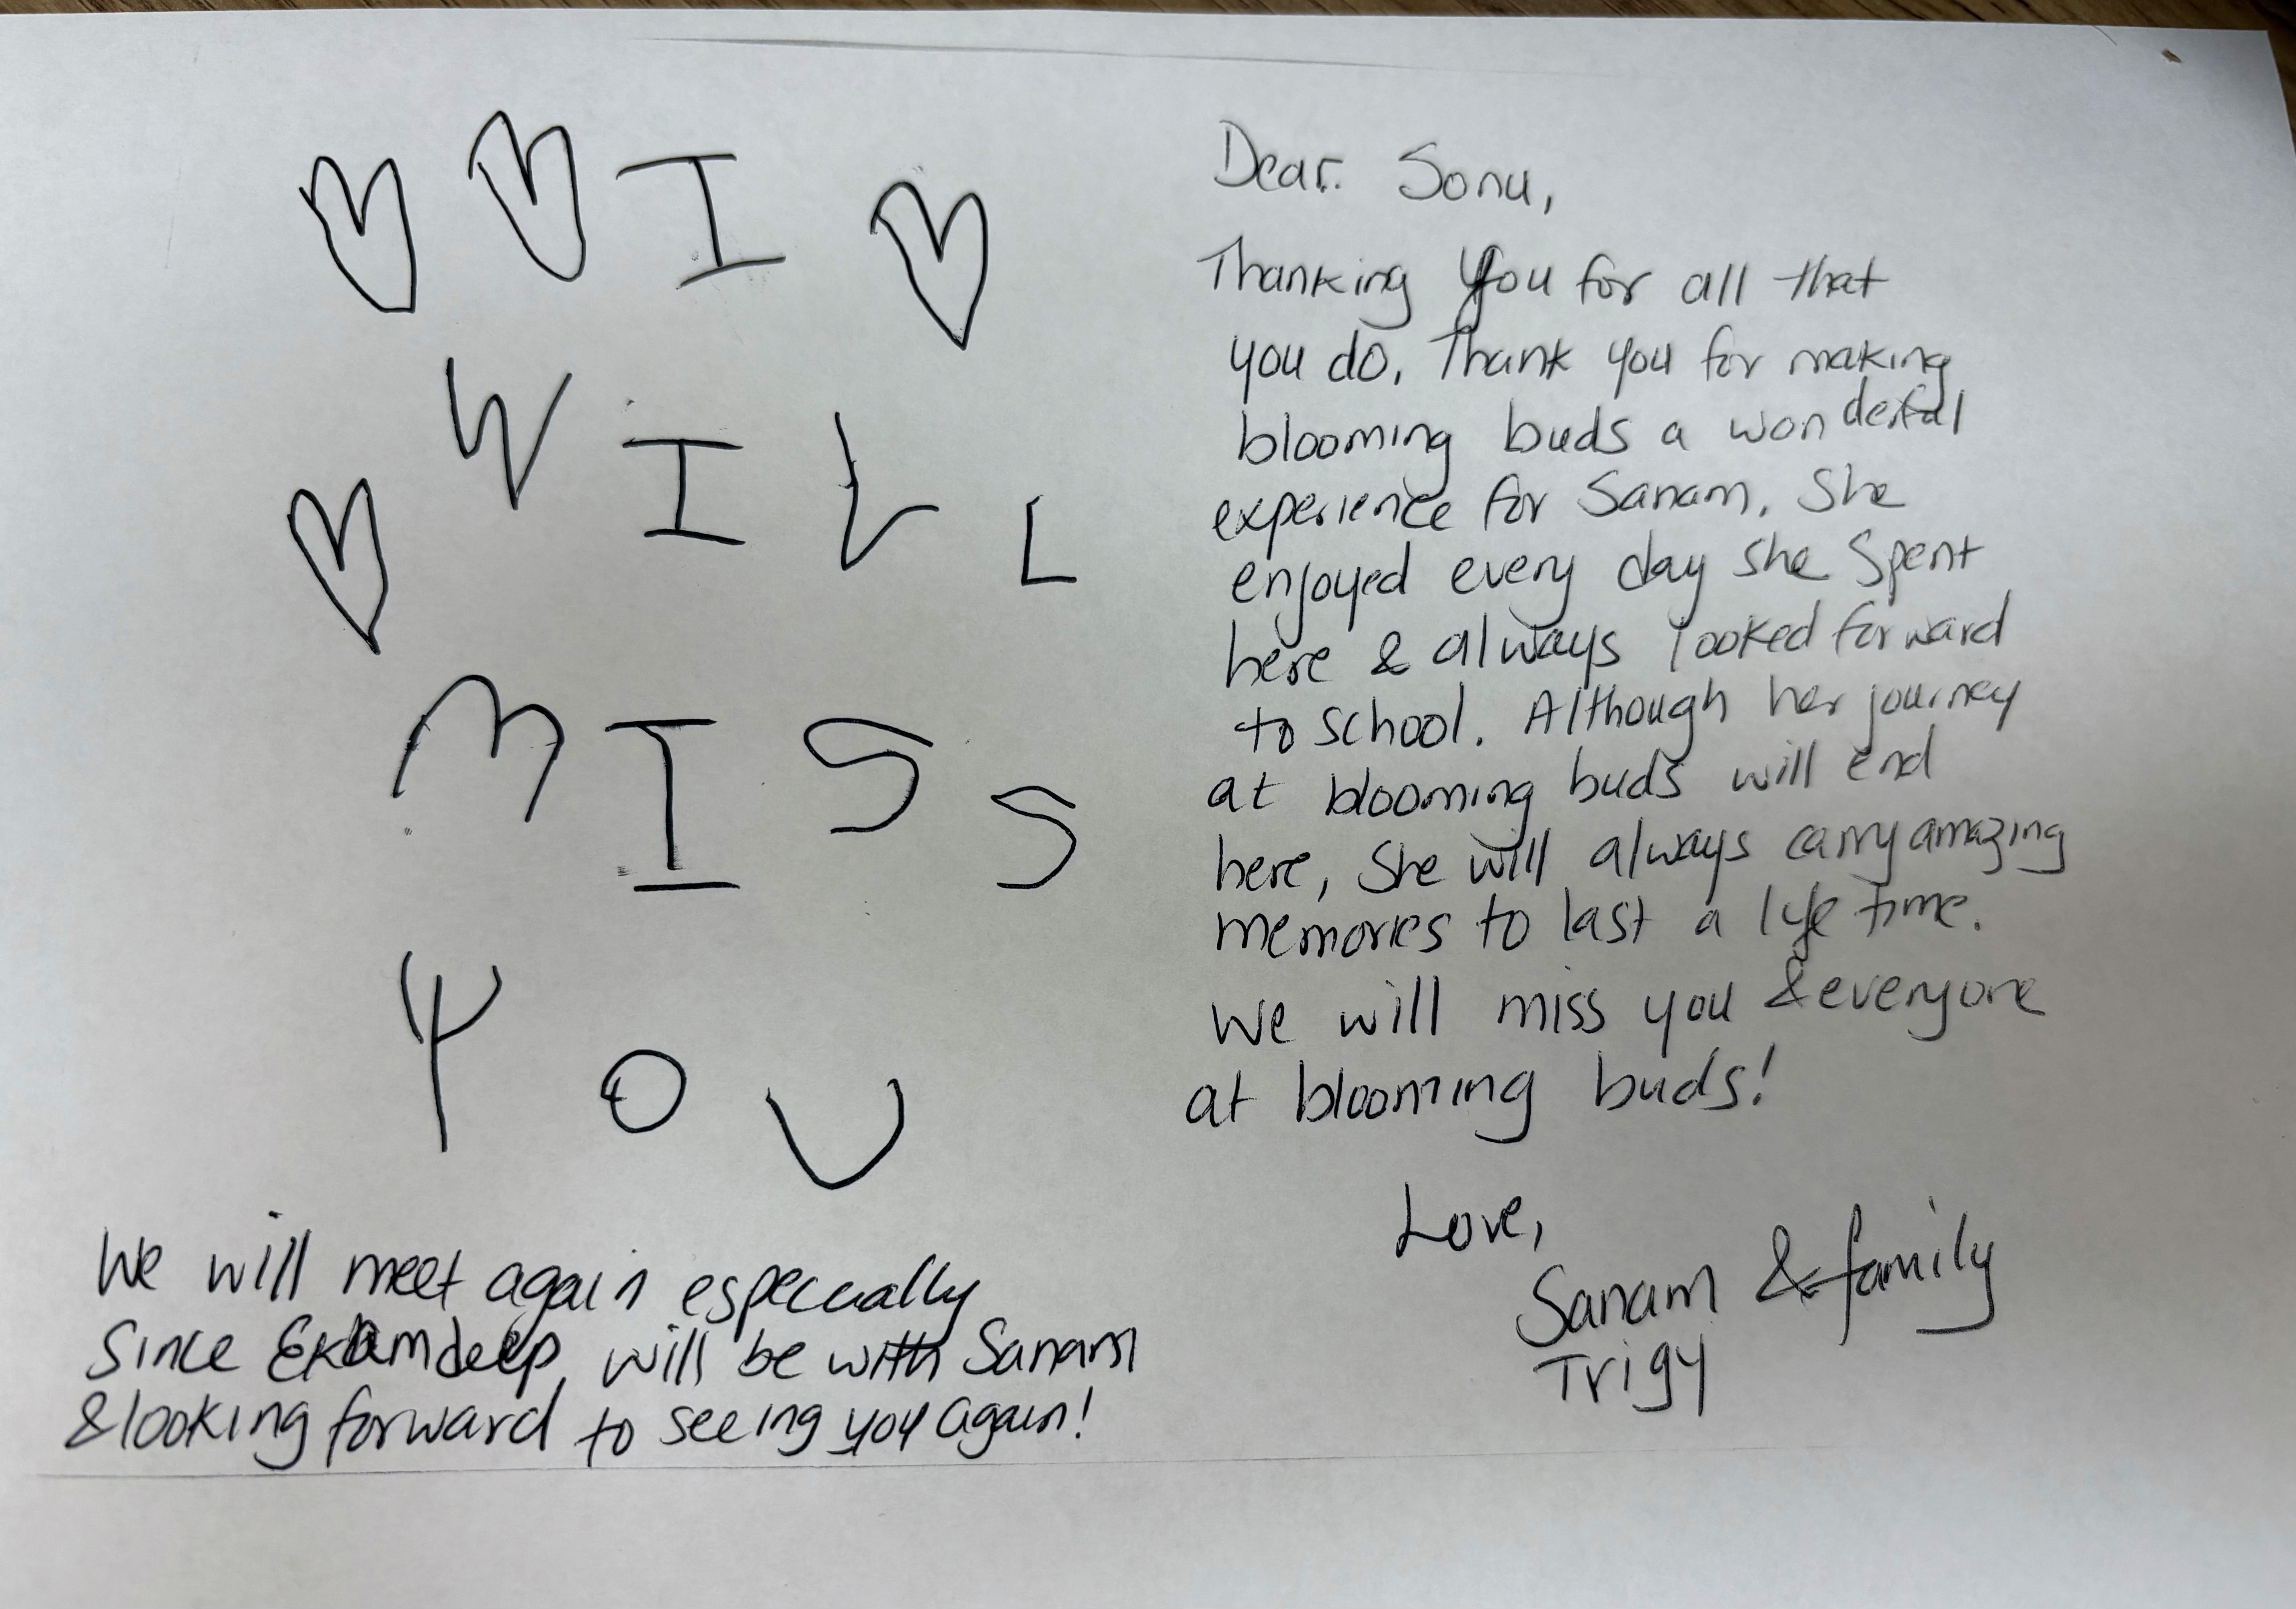 I
WILL
MISS
YOU
We will meet again especially
Since Ekamdeep will be with Sanam
& looking forward to seeing you again!
Dear. Sonu,
Thanking You for all that
you do. Thank you for making
blooming buds a wonderful
experience for Sanam. She
enjoyed every day she spent
here & always looked forward
to school. Although her journey
at blooming buds will end
here, She will always carry amazing
memories to last a life time.
We will miss you & everyone
at blooming buds!
Love,
Sanam & family
Trigy